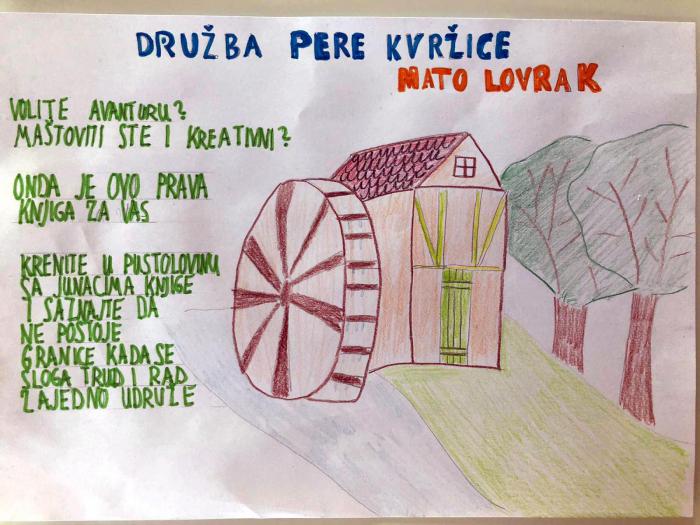 DRUŽBA PERE KVRŽICE
MATO LOVRAK
VOLITE AVANTURU?
MAŠTOVITI STE I KREATIVNI?
ONDA JE OVO PRAVA
KNJIGA ZA VAS
KRENITE U PUSTOLOVINU
SA JUNACIMA KNJIGE
I SAZNAJTE DA
NE POSTOJE
GRANICE KADA SE
SLOGA TRUD I RAD
ZAJEDNO UDRUŽE